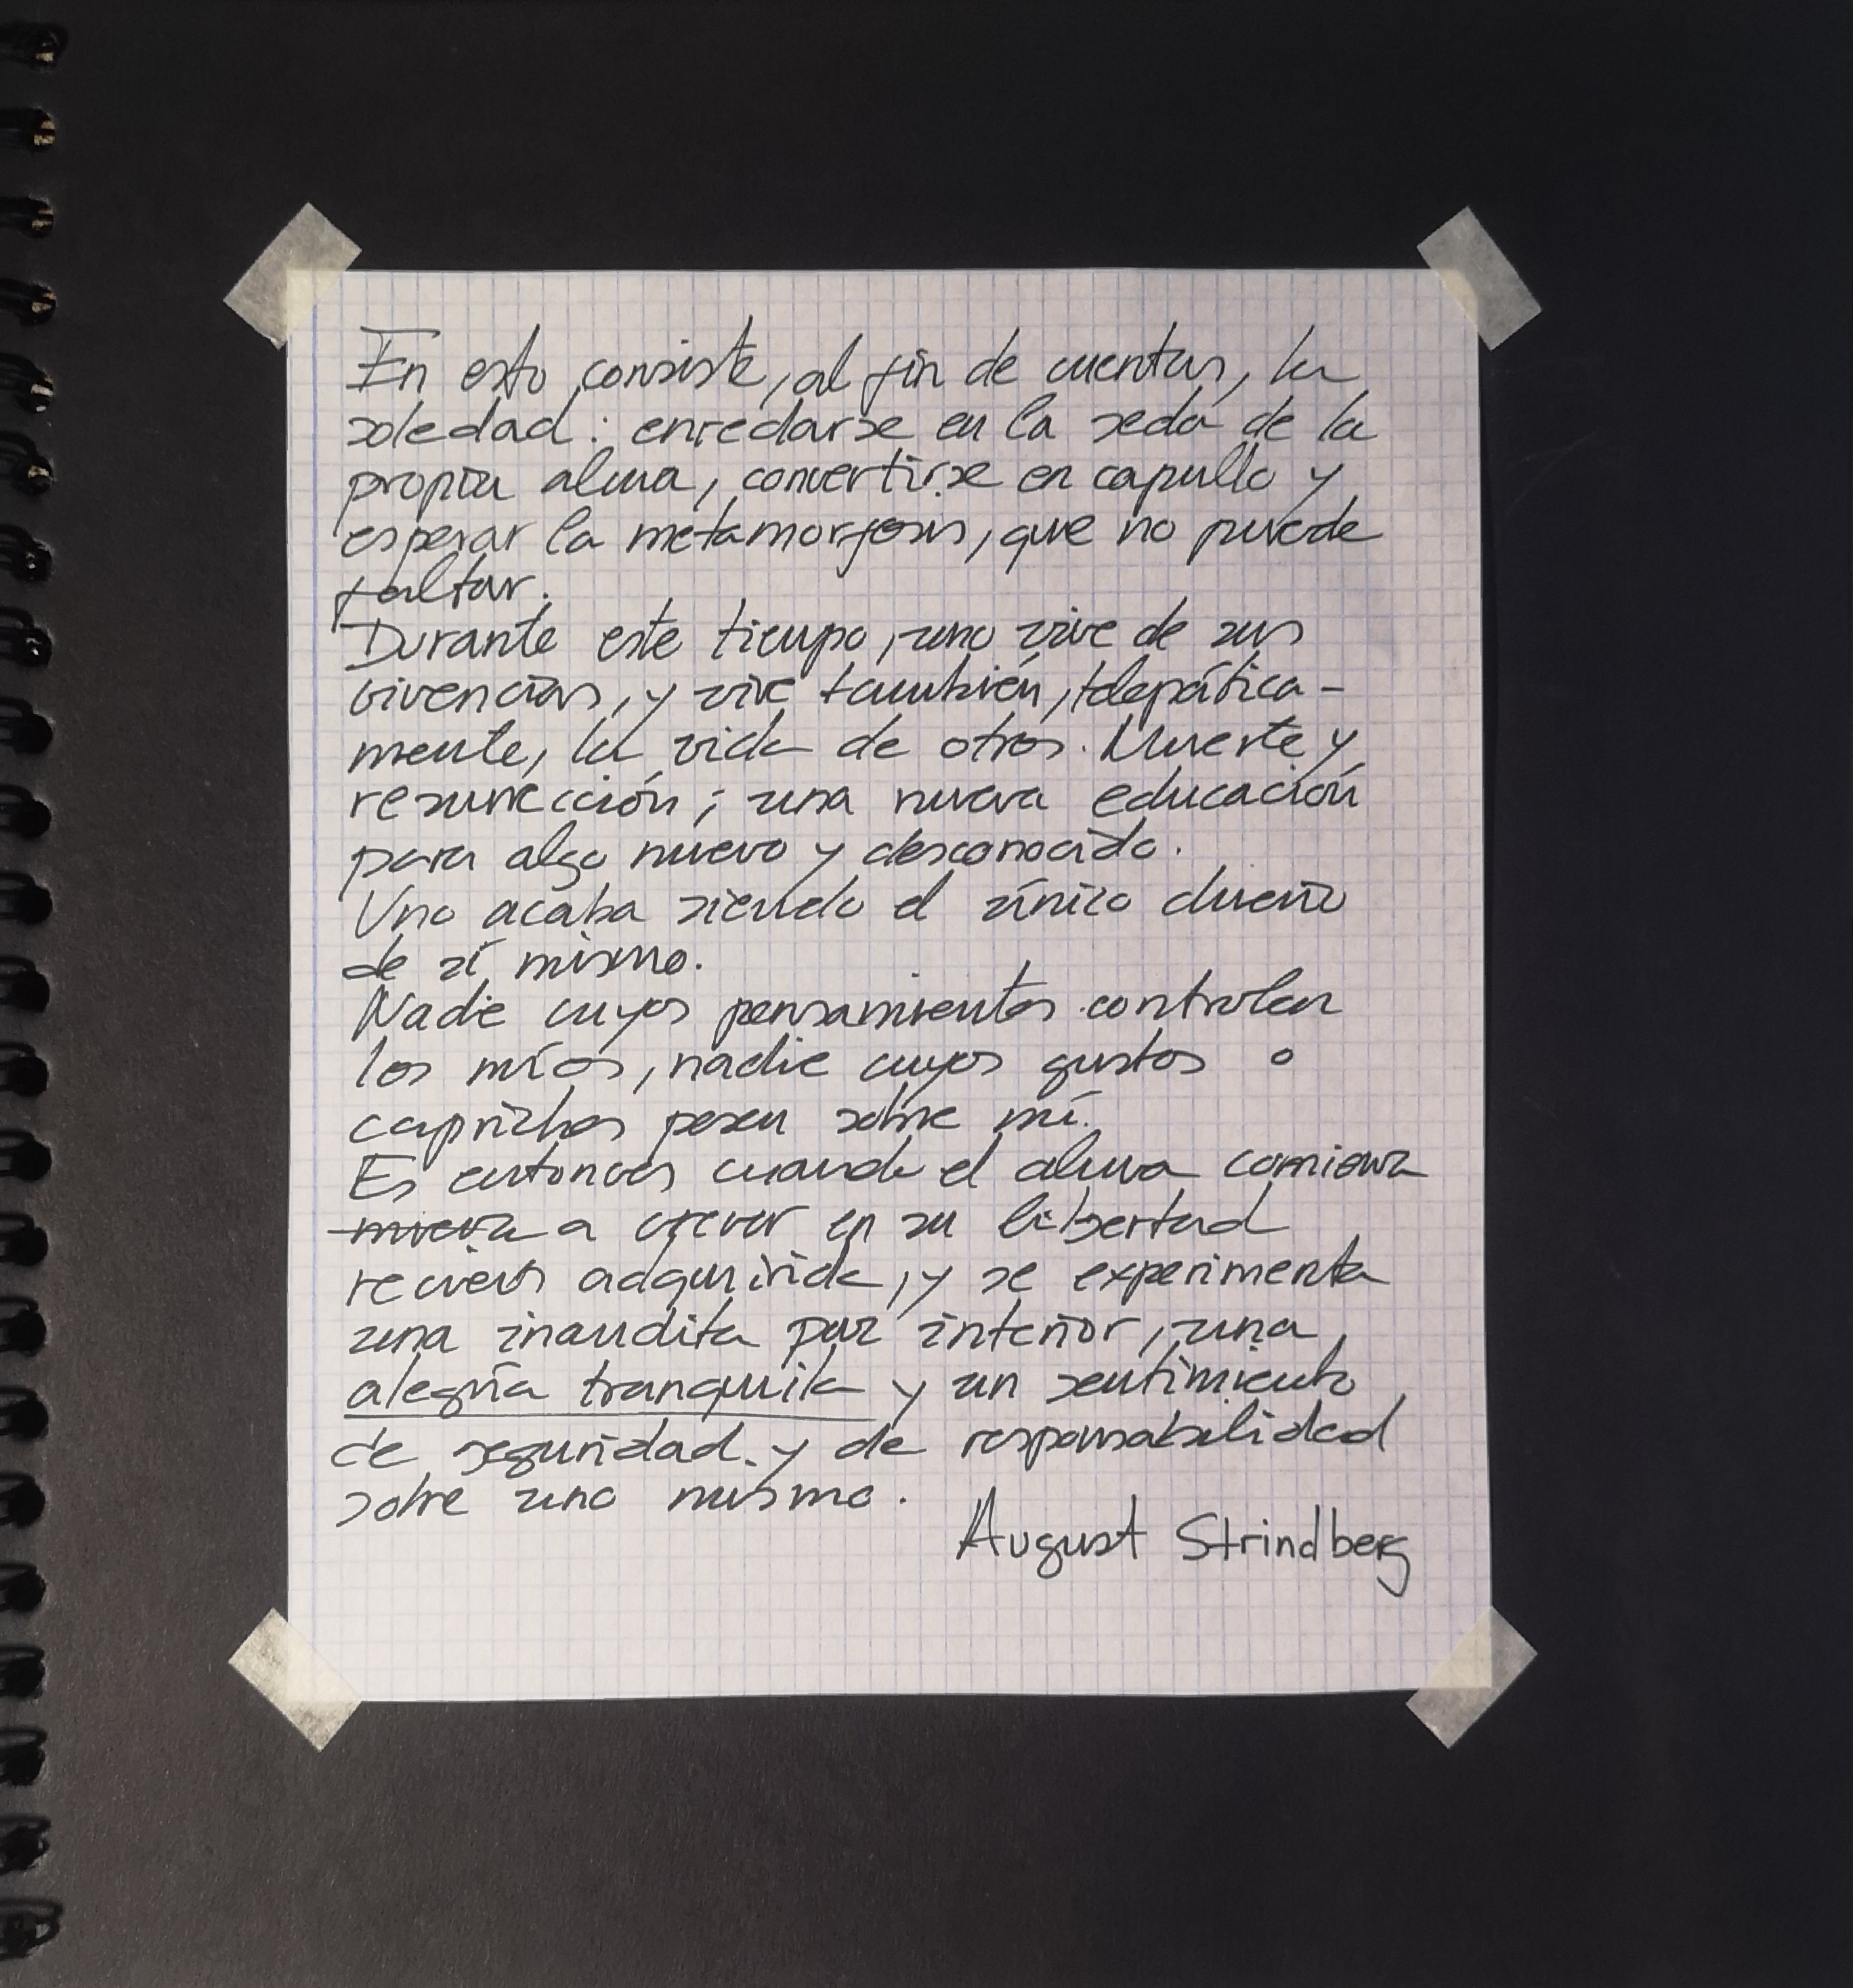 En esto consiste, al fin de cuentas, la
soledad: enredarse en la seda de la
propia alma, convertirse en capullo y
esperar la metamorfosis, que no puede
faltar.
Durante este tiempo, uno vive de sus
vivencias, y vive también, telepática-
mente, la vida de otros. Muerte y
resurrección; una nueva educación
para algo nuevo y desconocido.
Uno acaba siendo el único dueño
de sí mismo.
Nadie cuyos pensamientos controlen
los míos, nadie cuyos gustos o
caprichos pesen sobre mí.
Es entonces cuando el alma comienza
nueva a crecer en su libertad
recién adquirida, y se experimenta
una inaudita paz interior, una
alegría tranquila y un sentimiento
de seguridad y de responsabilidad
sobre uno mismo.
August Strindberg